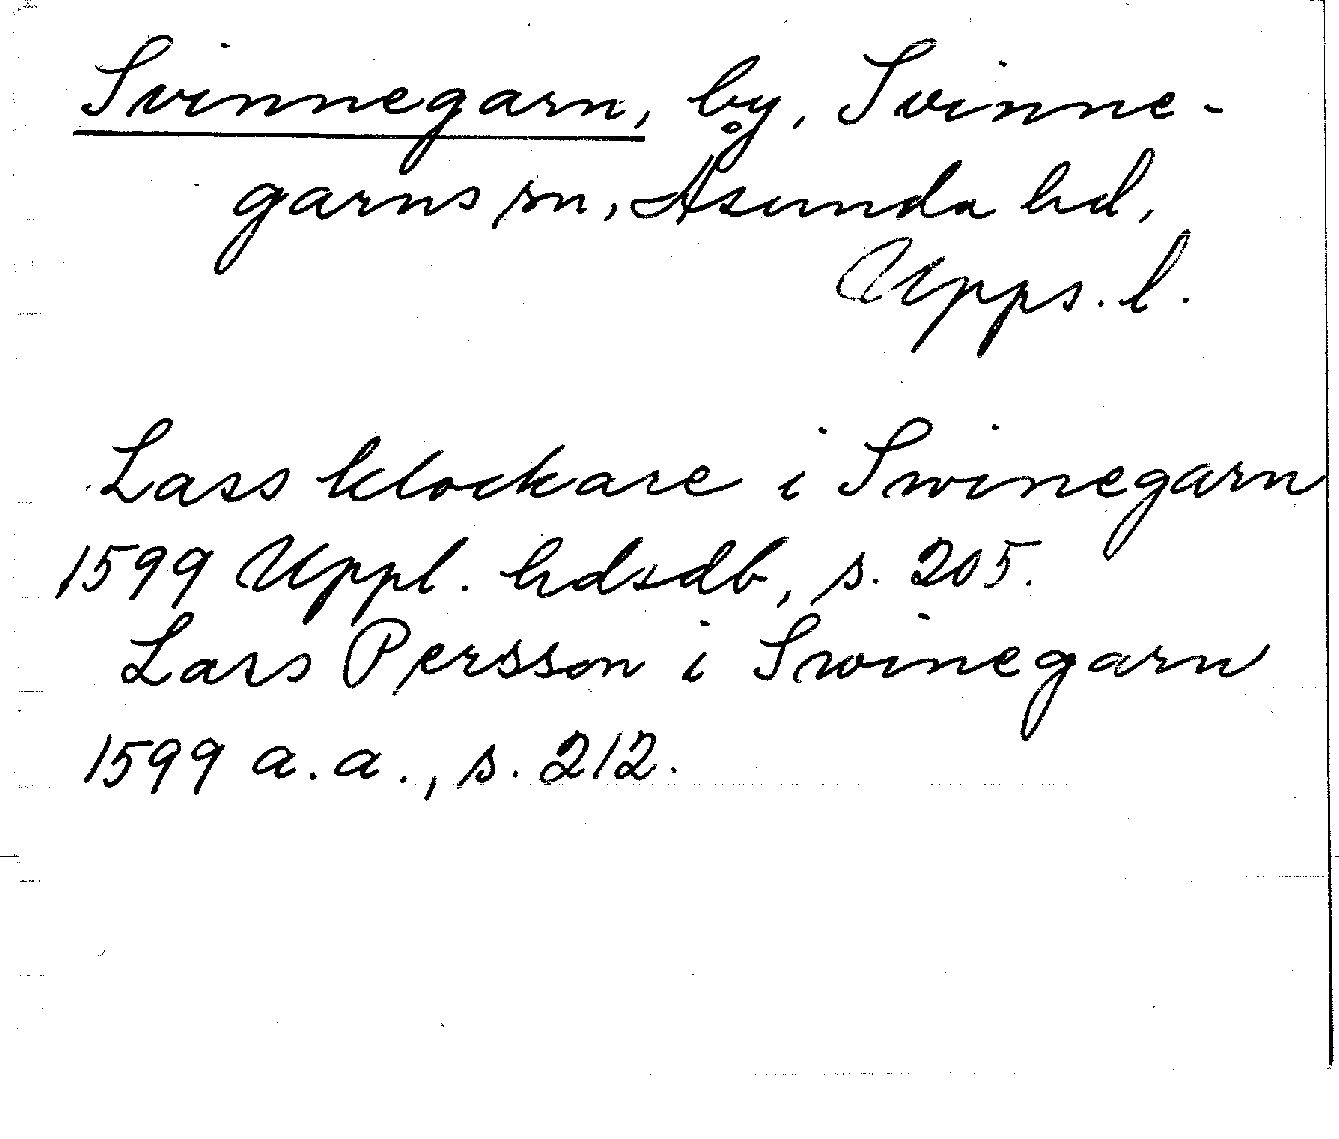 Svinnegarn, by, Svinne-
garns sn, Åsunda hd,
Upps. l.
Lass klockare i Swinegarn
1599 Uppl. hdsdb, s. 205.
Lars Persson i Swinegarn
1599 a.a., s. 212.